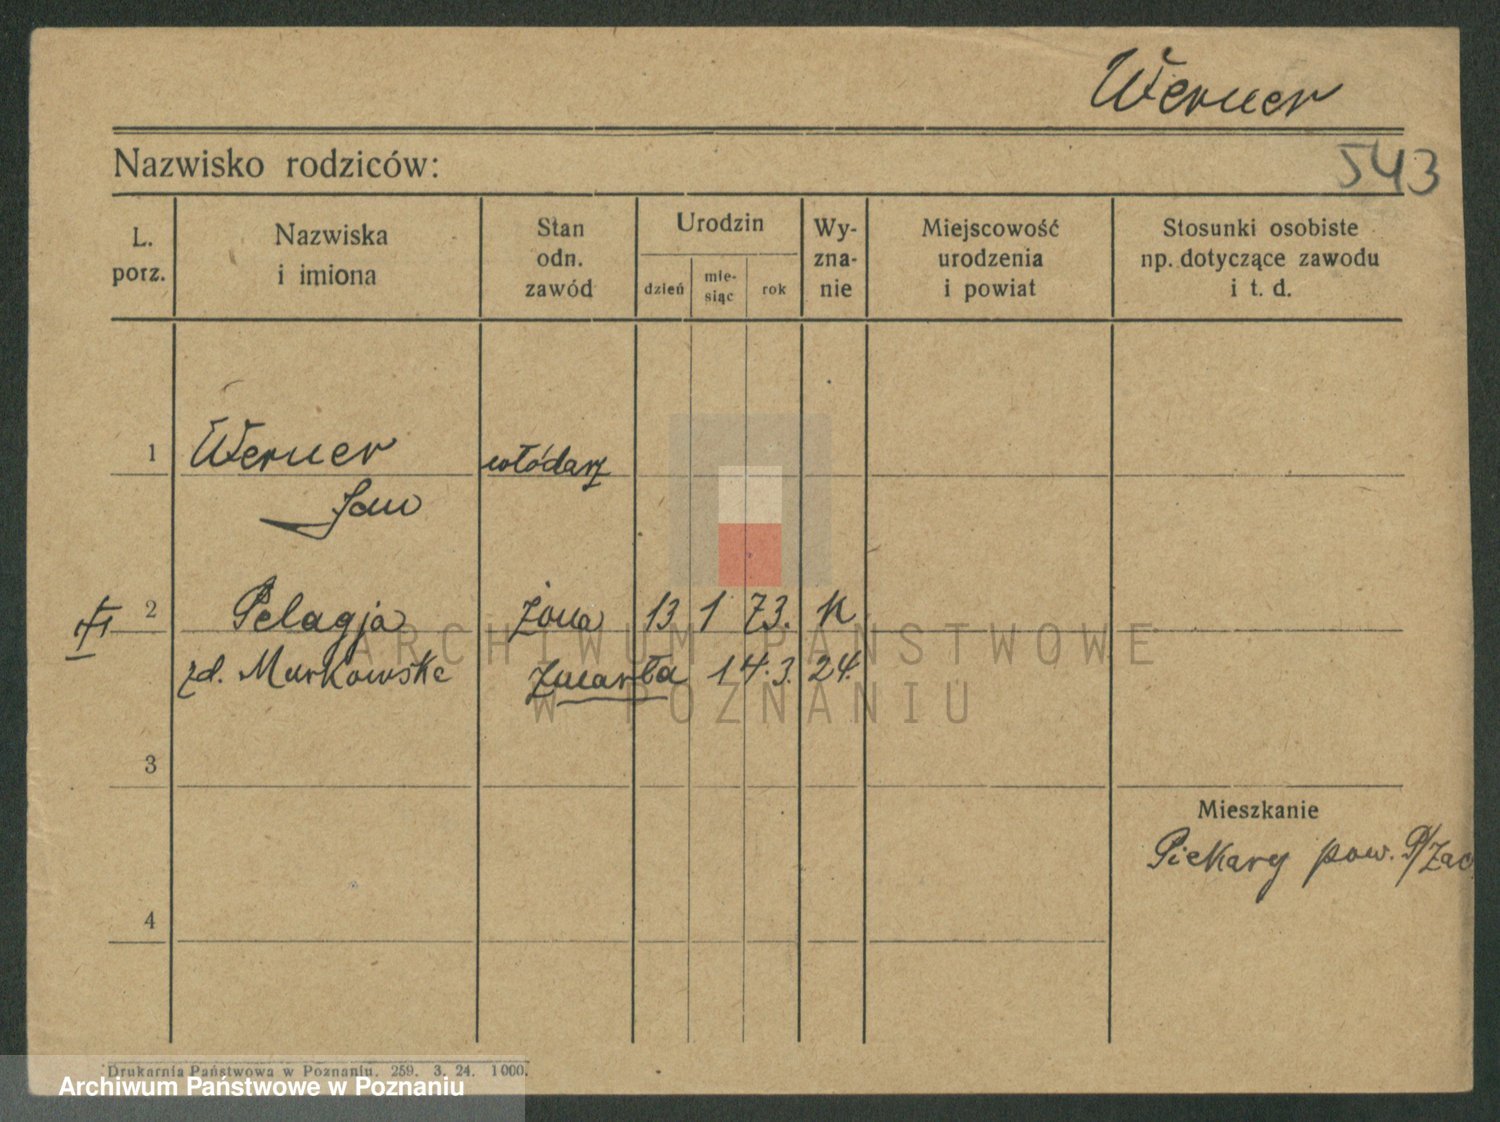 Werner
Nazwisko rodziców:
543
L. porz.
Nazwiska i imiona
Stan odn. zawód
Urodzin
dzień
mie-siąc
rok
Wy-zna-nie
Miejscowość urodzenia i powiat
Stosunki osobiste np. dotyczące zawodu i t. d.
1 Werner włódarz
Jan
2 Pelagja żona 13 1 73. K
zd. Murkowska zmarła 14.3.24.
3
Mieszkanie
Piekary pow. P/Zac
4
ARCHIWUM PAŃSTWOWE
W POZNANIU
Drukarnia Państwowa w Poznaniu. 259. 3. 24. 1000.
Archiwum Państwowe w Poznaniu